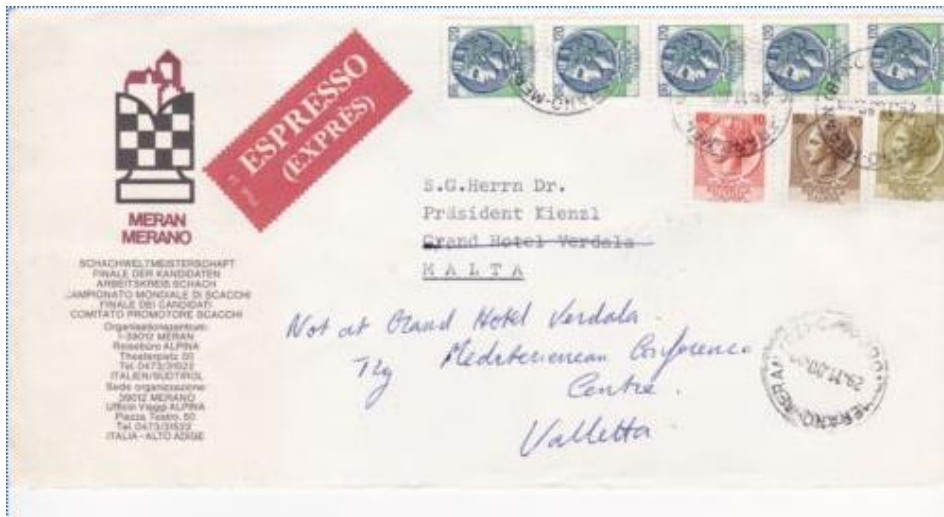 ESPRESSO
(EXPRÈS)
MERAN
MERANO
SCHACHWELTMEISTERSCHAFT
FINALE DER KANDIDATEN
ARBEITSKREIS SCHACH
CAMPIONATO MONDIALE DI SCACCHI
FINALE DEI CANDIDATI
COMITATO PROMOTORE SCACCHI
Organisationszentrum:
I-39012 MERAN
Reisebüro ALPINA
Theaterplatz 50
Tel. 0473/31522
ITALIEN/SÜDTIROL
Sede organizzazione:
39012 MERANO
Ufficio Viaggi ALPINA
Piazza Teatro, 50
Tel. 0473/31522
ITALIA - ALTO ADIGE
S.G.Herrn Dr.
Präsident Kienzl
Grand Hotel Verdala
MALTA
Not at Grand Hotel Verdala.
Try Mediterienean Conference
Centre.
Valletta.